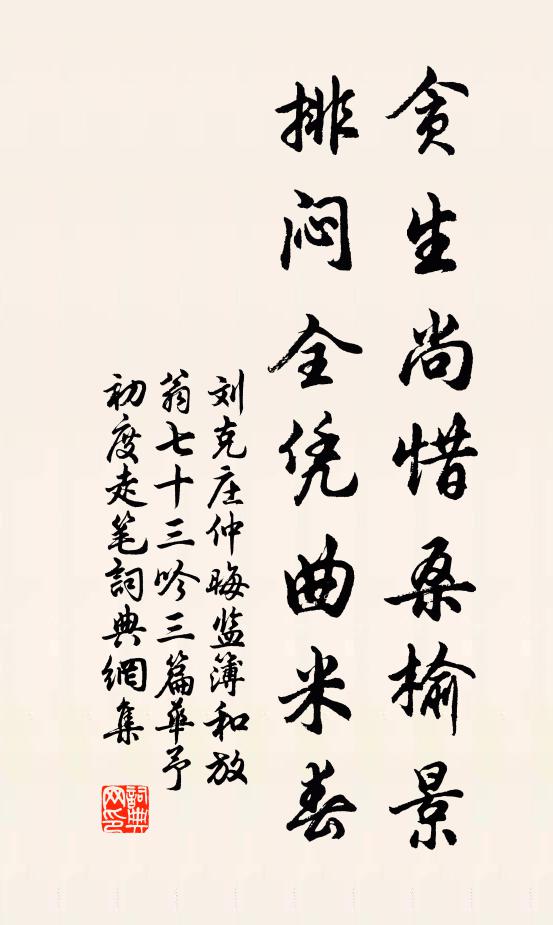 贪生尚惜桑榆景
排闷全凭曲米春
刘克庄仲晦监簿和放
翁七十三吟三篇华予
初度走笔詞典網集
詞典
网印